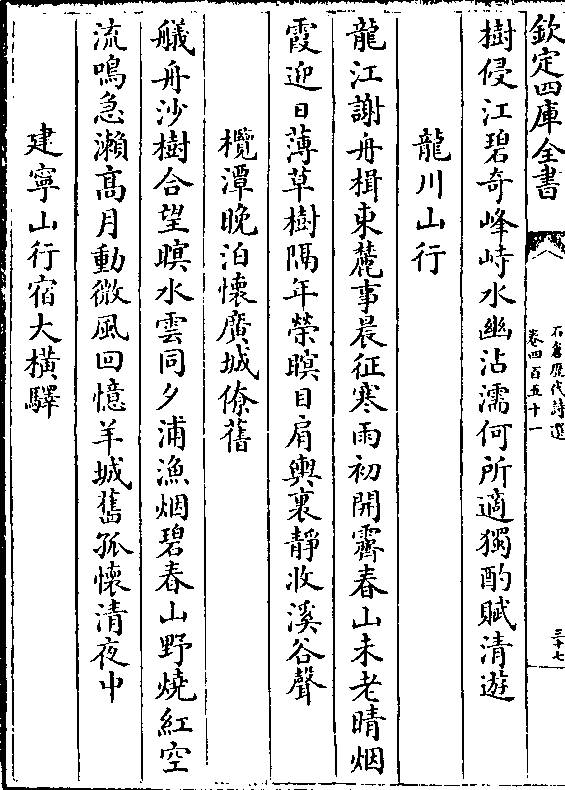 欽定四庫全書
石倉歷代詩選
卷四百五十一
三十七
樹侵江碧奇峰峙水幽沾濡何所適獨酌賦清遊
龍川山行
龍江謝舟楫東麓事晨征寒雨初開霽春山未老晴烟
霞迎日薄草樹隔年榮瞑目肩輿裏静收溪谷聲
欖潭晚泊懷廣城僚舊
艤舟沙樹合望暝水雲同夕浦漁烟碧春山野燒紅空
流鳴急瀨高月動微風回憶羊城舊孤懷清夜中
建寧山行宿大橫驛